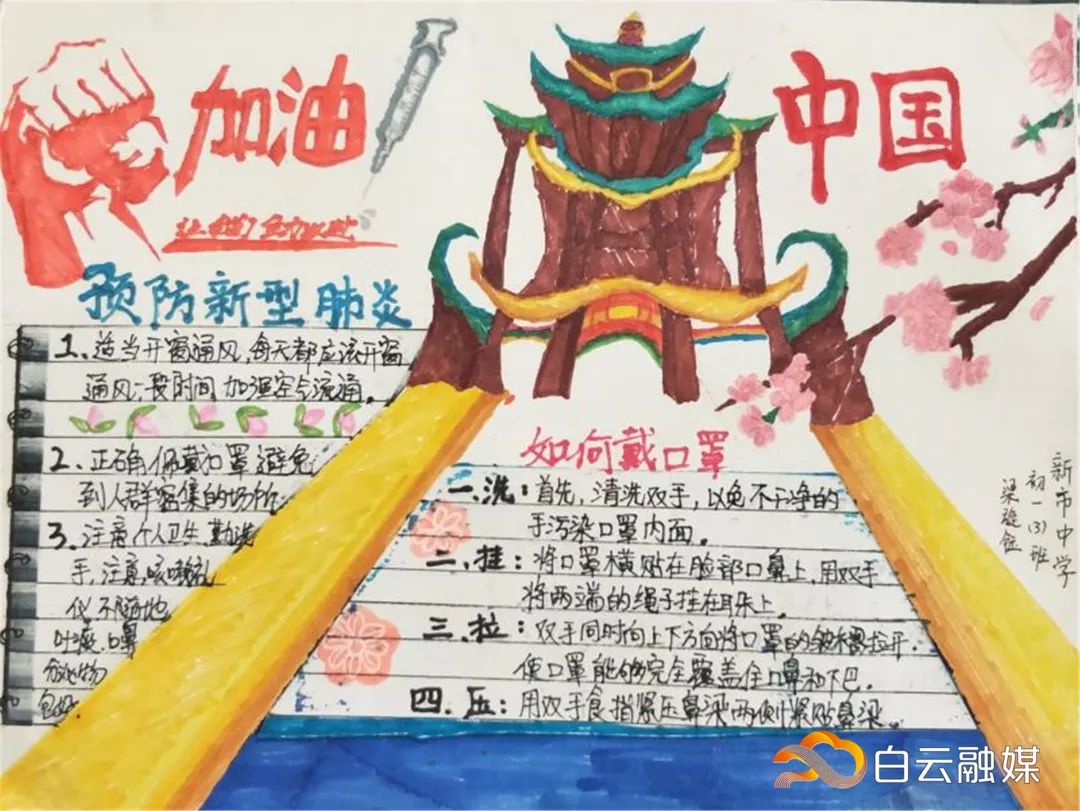 加油
中国
预防新型肺炎
1、适当开窗通风,每天都应该开窗
通风一段时间,加强空气流通。
2、正确佩戴口罩,避免
到人群密集的场所
3、注意个人卫生,勤洗
手,注意咳嗽礼
仪,不随地
吐痰、口鼻
分泌物
如何戴口罩
一、洗:首先,清洗双手,以免不干净的
手污染口罩内面。
二、挂:将口罩横贴在脸部口鼻上,用双手
将两端的绳子挂在耳朵上。
三、拉:双手同时向上下方向将口罩的皱褶拉开.
使口罩能够完全覆盖住口鼻和下巴。
四、压:用双手食指紧压鼻梁两侧紧贴鼻梁。
新市中学
初一(3)班
白云融媒